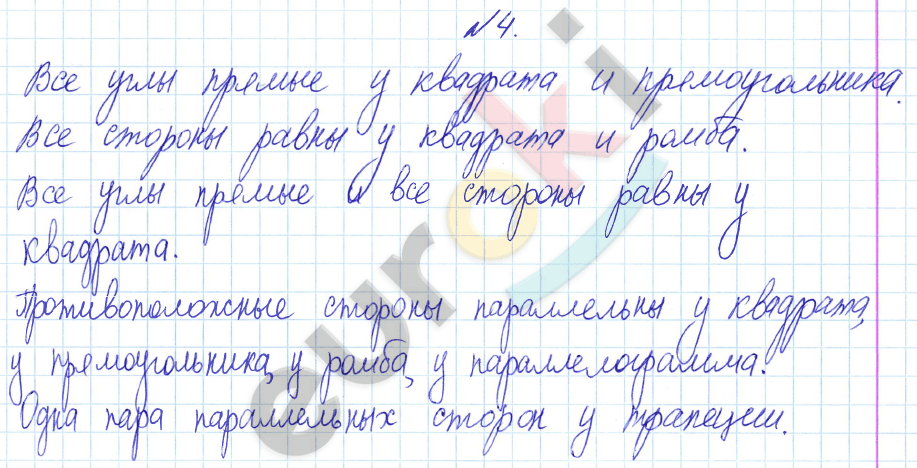 №4.
Все углы прямые у квадрата и прямоугольника.
Все стороны равны у квадрата и ромба.
Все углы прямые и все стороны равны у
квадрата.
Противоположные стороны параллельны у квадрата,
у прямоугольника, у ромба, у параллелограмма.
Одна пара параллельных сторон у трапеции.
euroki